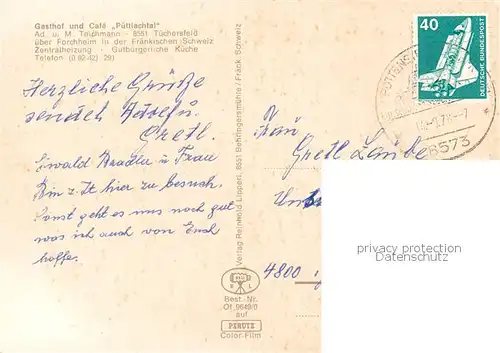 Gasthof und Café „Püttlachtal"
Ad. u. M. Teichmann - 8551 Tüchersfeld
über Forchheim in der Fränkischen Schweiz
Zentralheizung - Gutbürgerliche Küche
Telefon (0 92 42) 29)
40
DEUTSCHE BUNDESPOST
POTTENST
8573
Herzliche Grüße
sendet
Gretl.
Ewald u Frau
Bin z.Zt hier zu besuch.
Sonst geht es uns noch gut
was ich auch von Euch
hoffe.
Verlag Reinhold Lippert, 8551 Behringersmühle / Fränk. Schweiz
Frau
Gretl
4800
privacy protection
Datenschutz
R L
Best.-Nr.
Of 9649/0
auf
PERUTZ
Color-Film